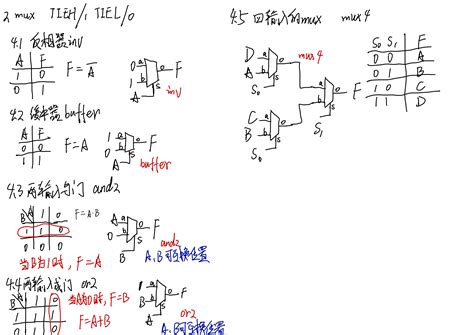 2 mux TIEH/1 TIEL/0
4.1 反相器inv
A F
1 0
0 1
F=A̅
0 a
1 b
A
S
o F
inv
4.2 缓冲器buffer
A F
0 0
1 1
F=A
1 a
0 b
A
S
o F
buffer
4.3 两输入与门 and2
B A 1 0
1 1 0
0 0 0
F=A·B
当B为1时,F=A
A a
0 b
B
S
o F
and2
A、B可互换位置
4.4 两输入或门 or2
B A 1 0
1 1 1
0 1 0
当A为0时,F=B
F=A+B
1 a
B b
A
S
F
or2
A、B可互换位置
4.5 四输入的mux mux4
D a
A b
S₀
S
o
mux4
C a
B b
S₀
S
o
a
b
S
S₁
o F
S₀ S₁ F
0 0 A
0 1 B
1 0 C
1 1 D